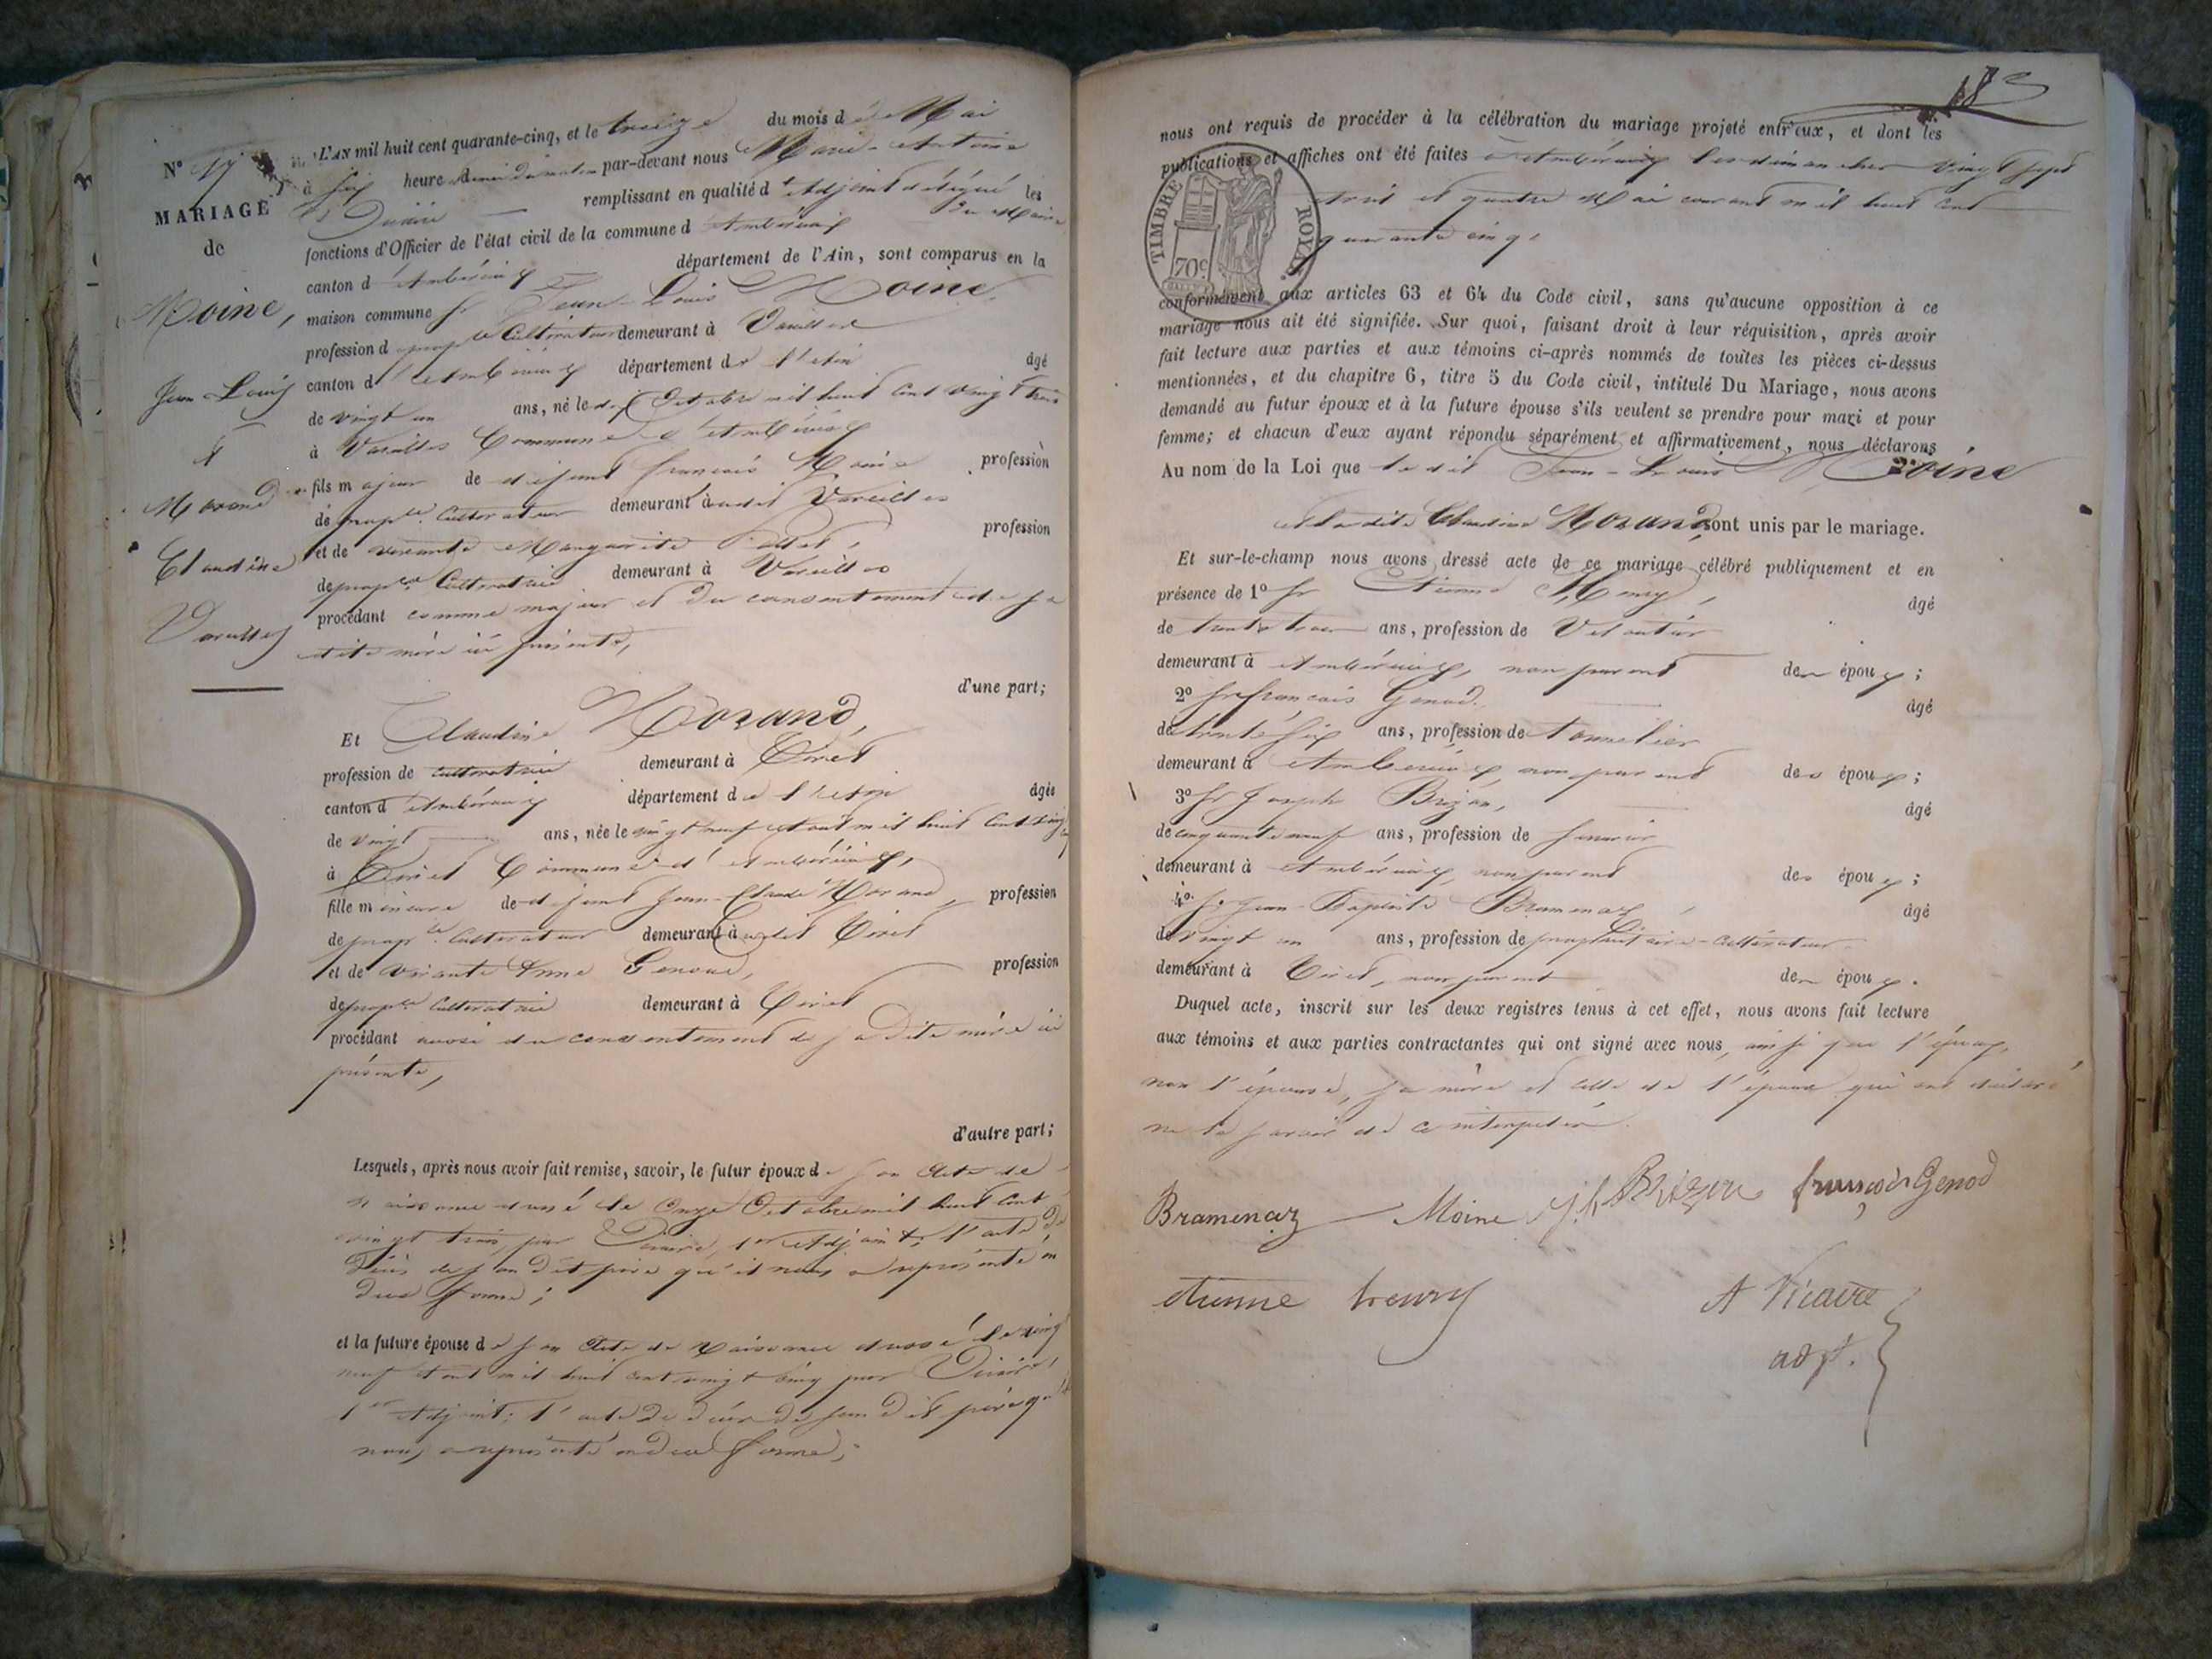 N° 17
MARIAGE
de
Moine,
Jean Louis
&
Morand
Claudine
Vareilles
L'AN mil huit cent quarante-cinq, et le treize du mois de Mai
à six heures du matin par-devant nous Marie-Antoine
Vicaire remplissant en qualité d'Adjoint délégué les
du Maire
fonctions d'Officier de l'état civil de la commune d'Ambérieux
canton d'Ambérieux département de l'Ain, sont comparus en la
maison commune Sr Jean-Louis Moine,
profession de prop.re Cultivateur demeurant à Vareilles
canton d'Ambérieux département de l'Ain âgé
de vingt un ans, né le dix Octobre mil huit cent vingt trois
à Vareilles Commune d'Ambérieux
fils majeur de défunt François Moine profession
de prop.re Cultivateur demeurant audit Vareilles
et de vivante Marguerite profession
de prop.re Cultivatrice demeurant à Vareilles
procédant comme majeur et du consentement de sa
dite mère ici présente,
d'une part;
Et Claudine Morand,
profession de cultivatrice demeurant à Tiret
canton d'Ambérieux département de l'Ain âgée
de vingt ans, née le vingt neuf Aout mil huit cent vingt cinq
à Tiret Commune d'Ambérieux,
fille mineure de défunt Jean-Claude Morand, profession
de prop.re Cultivateur demeurant audit Tiret
et de vivante Anne Genoud, profession
de prop.re Cultivatrice demeurant à Tiret
procédant aussi du consentement de sadite mère ici
présente,
d'autre part;
Lesquels, après nous avoir fait remise, savoir, le futur époux de son Acte de
naissance dressé le onze Octobre mil huit cent
vingt trois, par Vicaire, 1er Adjoint; l'acte de
décès de son dit père qu'il nous a représenté en
due forme;
et la future épouse de son Acte de Naissance dressé le vingt
neuf Aout mil huit cent vingt cinq par Vicaire
1er Adjoint; l'acte de décès de son dit père qu'elle
nous a représenté en due forme;
183
nous ont requis de procéder à la célébration du mariage projeté entr'eux, et dont les
publications et affiches ont été faites à Ambérieux les dimanches vingt sept
Avril et quatre Mai courant mil huit cent
quarante cinq,
TIMBRE ROYAL
70c
conformément aux articles 63 et 64 du Code civil, sans qu'aucune opposition à ce
mariage nous ait été signifiée. Sur quoi, faisant droit à leur réquisition, après avoir
fait lecture aux parties et aux témoins ci-après nommés de toutes les pièces ci-dessus
mentionnées, et du chapitre 6, titre 5 du Code civil, intitulé Du Mariage, nous avons
demandé au futur époux et à la future épouse s'ils veulent se prendre pour mari et pour
femme; et chacun d'eux ayant répondu séparément et affirmativement, nous déclarons
Au nom de la Loi que ledit Jean-Louis Moine
et ladite Claudine Morand, sont unis par le mariage.
Et sur-le-champ nous avons dressé acte de ce mariage célébré publiquement et en
présence de 1° Sr Etienne âgé
de trente trois ans, profession de
demeurant à Ambérieux, non parent des époux;
2° Sr François Genod. âgé
de trente six ans, profession de tonnelier
demeurant à Ambérieux, non parent des époux;
3° Sr Joseph Brizon, âgé
de cinquante neuf ans, profession de
demeurant à Ambérieux, non parent des époux;
4° Sr Jean-Baptiste Bramenaz, âgé
de vingt un ans, profession de propriétaire-cultivateur
demeurant à Tiret, non parent des époux.
Duquel acte, inscrit sur les deux registres tenus à cet effet, nous avons fait lecture
aux témoins et aux parties contractantes qui ont signé avec nous, ainsi que l'époux,
non l'épouse, sa mère et celle de l'époux qui ont déclaré
ne le savoir de ce interpelées.
Bramenaz Moine J.h Brizon françois Genod
etienne A Vicaire
adj.t